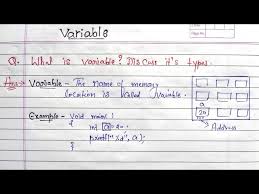 Variable
Q. What is variable? Discuss it's types.
Ans→ Variable - The name of memory
location is called variable.
Example - Void main (
{
int a=20;
printf("%d", a);
}
a
20
Address